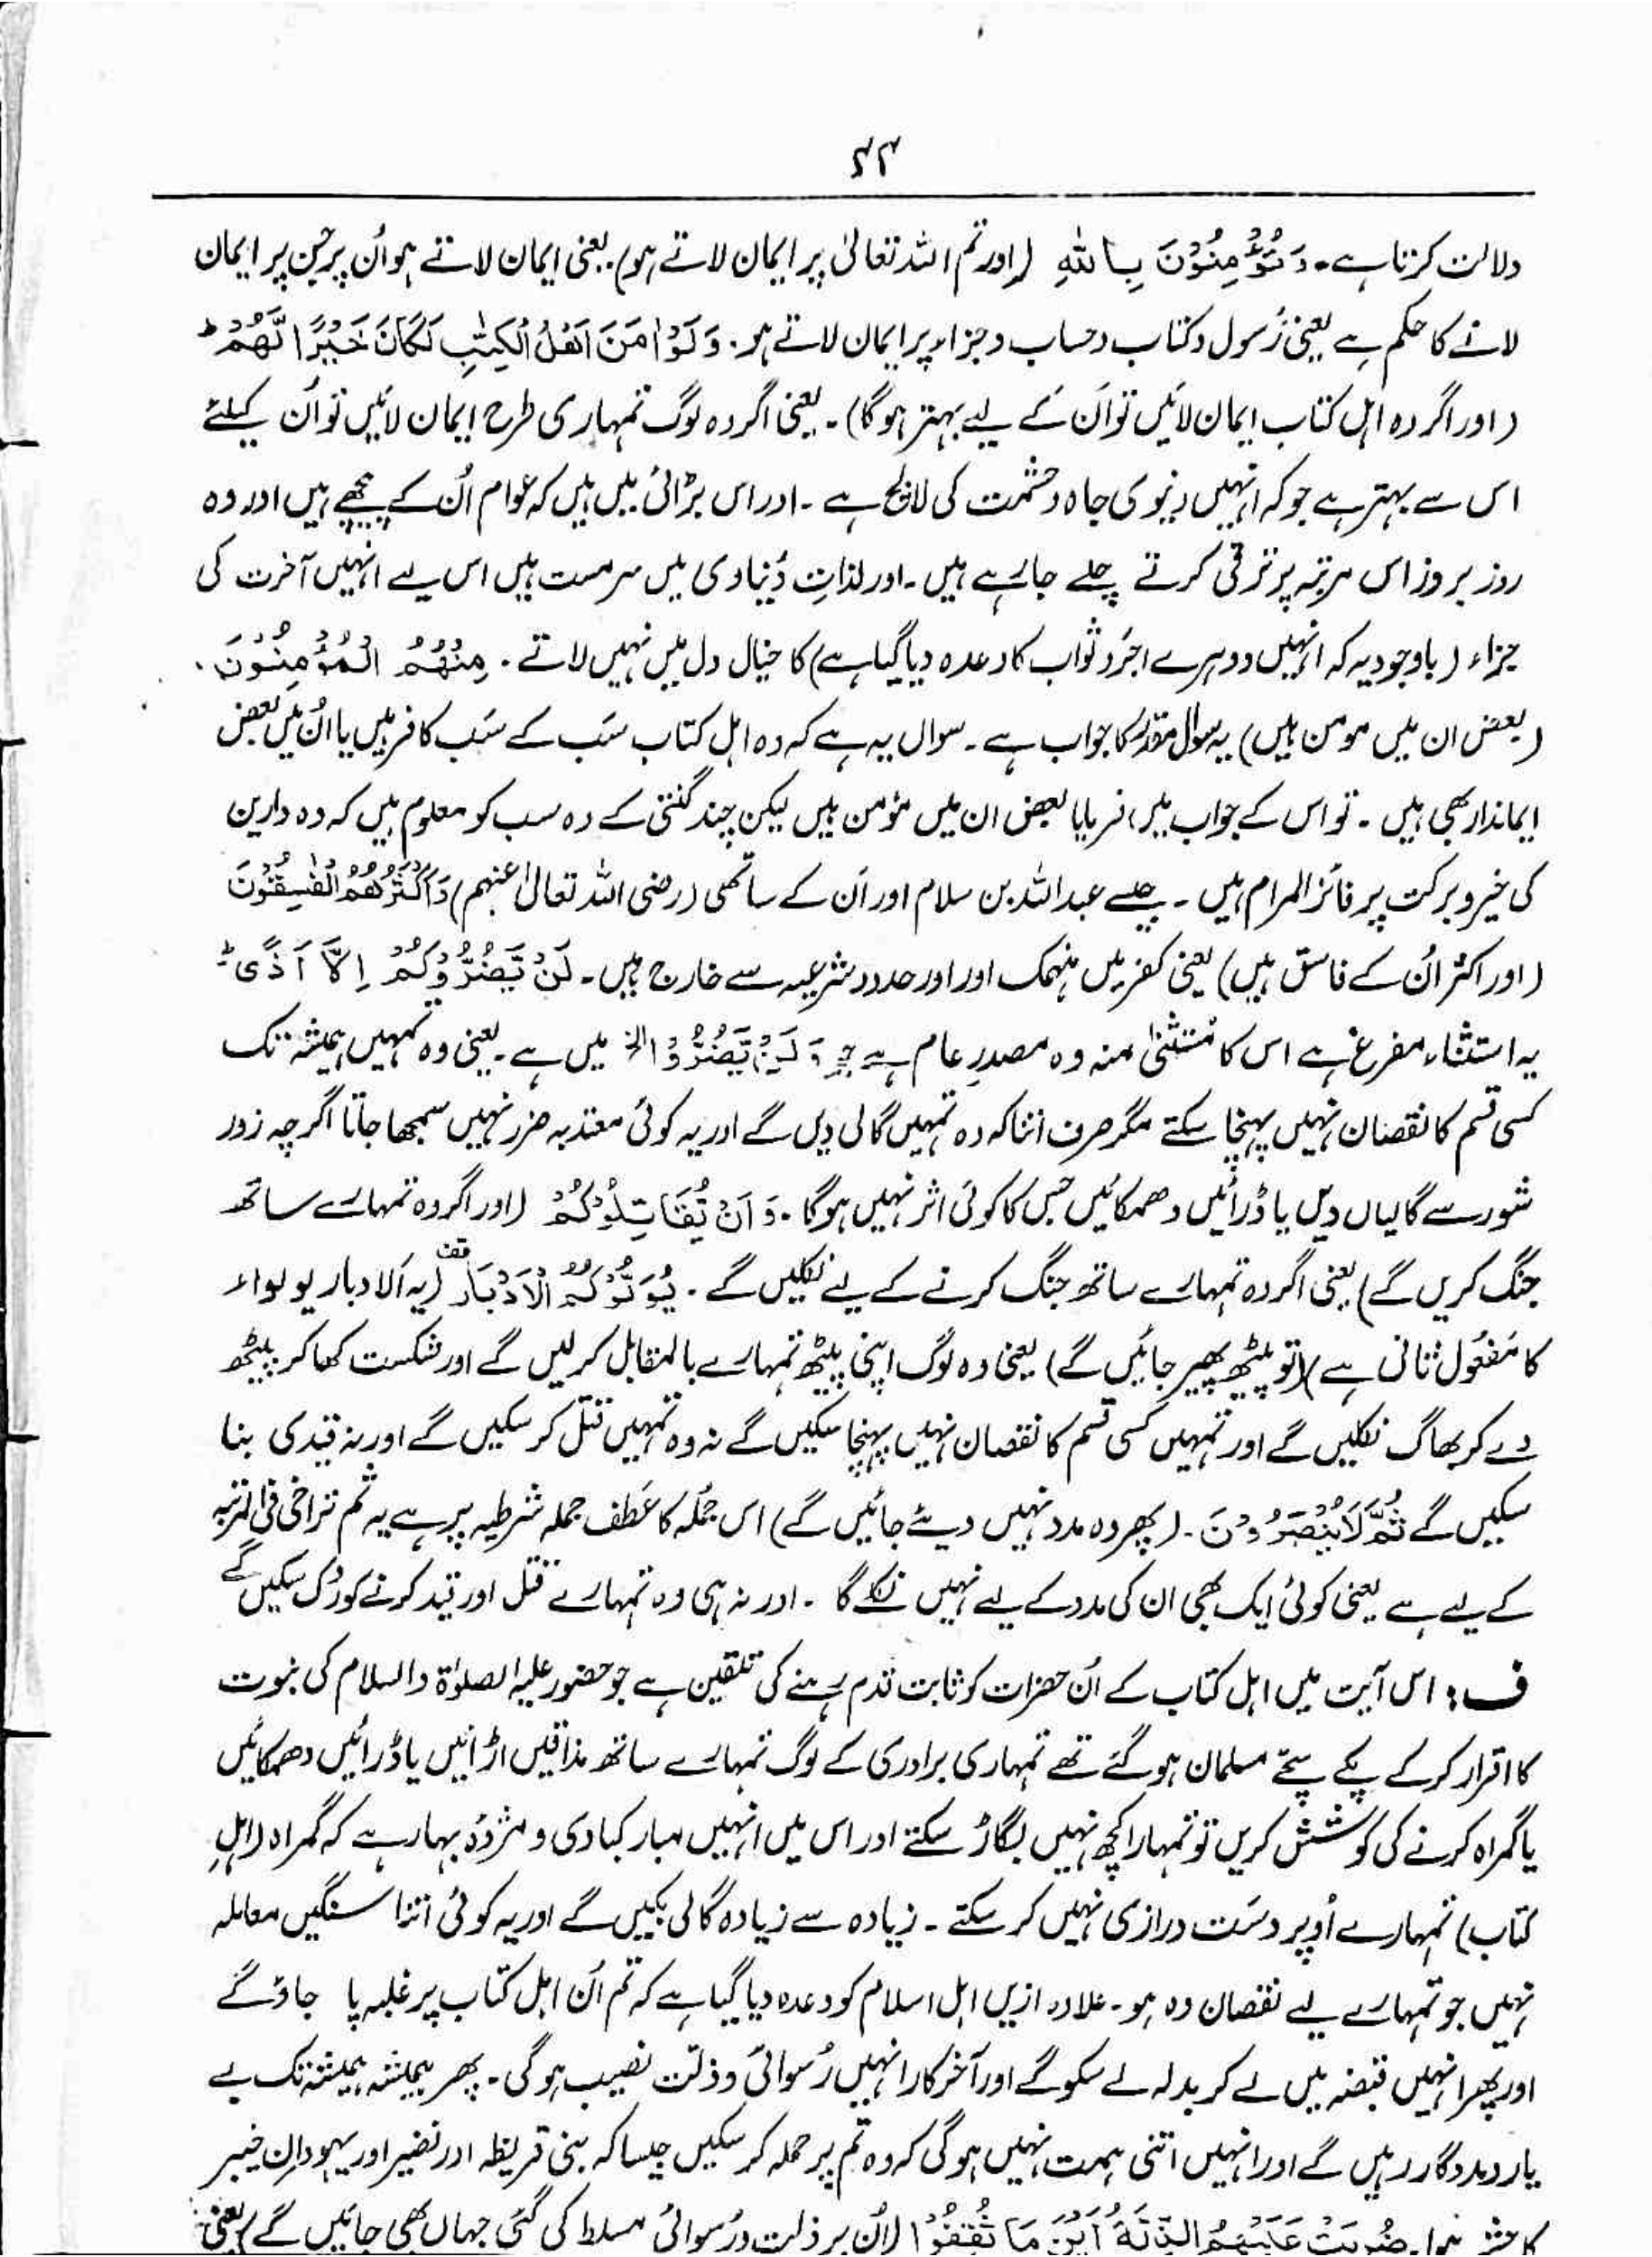 ۴۴
دلالت کرتا ہے۔ وَتُؤْمِنُوْنَ بِاللّٰهِ (اور تم اللہ تعالیٰ پر ایمان لاتے ہو) یعنی ایمان لاتے ہو اُن پر جن پر ایمان
لانے کا حکم ہے یعنی رُسول و کتاب و حساب و جزاء پر ایمان لاتے ہو۔ وَلَوْ اٰمَنَ اَهْلُ الْكِتٰبِ لَكَانَ خَيْرًا لَّهُمْ ط
(اور اگر وہ اہل کتاب ایمان لائیں تو اُن کے لیے بہتر ہوگا)۔ یعنی اگر وہ لوگ تمہاری طرح ایمان لائیں تو اُن کیلئے
اس سے بہتر ہے جو کہ انہیں دنیوی جاہ و حشمت کی لالچ ہے۔ اور اس بڑائی میں ہیں کہ عوام اُن کے پیچھے ہیں اور وہ
روز بروز اس مرتبہ پر ترقی کرتے چلے جا رہے ہیں۔ اور لذاتِ دُنیاوی میں سرمست ہیں اس لیے انہیں آخرت کی
جزاء (باوجودیہ کہ انہیں دوہرے اجر و ثواب کا وعدہ دیا گیا ہے) کا خیال دل میں نہیں لاتے۔ مِنْهُمُ الْمُؤْمِنُوْنَ۔
(بعض ان میں مومن ہیں) یہ سوال مقدر کا جواب ہے۔ سوال یہ ہے کہ وہ اہل کتاب سَب کے سَب کافر ہیں یا اُن میں بعض
ایماندار بھی ہیں۔ تو اس کے جواب میں فرمایا بعض ان میں مؤمن ہیں لیکن چند گنتی کے وہ سب کو معلوم ہیں کہ وہ دارین
کی خیر و برکت پر فائز المرام ہیں۔ جیسے عبداللہ بن سلام اور اُن کے ساتھی (رضی اللہ تعالیٰ عنہم) وَاَكْثَرُهُمُ الْفٰسِقُوْنَ
(اور اکثر اُن کے فاسق ہیں) یعنی کفر میں منہمک اور اور حدود شرعیہ سے خارج ہیں۔ لَنْ يَّضُرُّوْكُمْ اِلَّا اَذًى ط
یہ استثناء مفرغ ہے اس کا مُستثنیٰ منہ وہ مصدرِ عام ہے جو وَلَنْ يَّضُرُّوْا الخ میں ہے۔ یعنی وہ تمہیں ہمیشہ تک
کسی قسم کا نقصان نہیں پہنچا سکتے مگر صرف اتنا کہ وہ تمہیں گالی دیں گے اور یہ کوئی معتدبہ ضرر نہیں سمجھا جاتا اگرچہ زور
شور سے گالیاں دیں یا ڈرائیں دھمکائیں جس کا کوئی اثر نہیں ہوگا۔ وَاِنْ يُّقَاتِلُوْكُمْ (اور اگر وہ تمہارے ساتھ
جنگ کریں گے) یعنی اگر وہ تمہارے ساتھ جنگ کرنے کے لیے نکلیں گے۔ يُوَلُّوْكُمُ الْاَدْبَارَ قف (یہ اَلادبار یولواء
کا مَفعُول ثانی ہے) (تو پیٹھ پھیر جائیں گے) یعنی وہ لوگ اپنی پیٹھ تمہارے بالمقابل کر لیں گے اور شکست کھا کر پیٹھ
دے کر بھاگ نکلیں گے اور تمہیں کسی قسم کا نقصان نہیں پہنچا سکیں گے نہ وہ تمہیں قتل کر سکیں گے اور نہ قیدی بنا
سکیں گے ثُمَّ لَا يُنْصَرُوْنَ۔ (پھر وہ مدد نہیں دیئے جائیں گے) اس جُملہ کا عَطف جملہ شرطیہ پر ہے یہ ثم تراخی فی المرتبہ
کے لیے ہے یعنی کوئی ایک بھی ان کی مدد کے لیے نہیں نکلے گا۔ اور نہ ہی وہ تمہارے قتل اور قید کرنے کو رُک سکیں گے
ف: اس آیت میں اہل کتاب کے اُن حضرات کو ثابت قدم رہنے کی تلقین ہے جو حضور علیہ الصلوٰۃ والسلام کی نبوت
کا اقرار کر کے پکے سچے مسلمان ہو گئے تھے تمہاری برادری کے لوگ تمہارے ساتھ مذاقیں اڑائیں یا ڈرائیں دھمکائیں
یا گمراہ کرنے کی کوشش کریں تو تمہارا کچھ نہیں بگاڑ سکتے اور اس میں انہیں مبارکبادی و مژدۂ بہار ہے کہ گمراہ (اہلِ
کتاب) تمہارے اُوپر دسَت درازی نہیں کر سکتے۔ زیادہ سے زیادہ گالی بکیں گے اور یہ کوئی اتنا سنگیں معاملہ
نہیں جو تمہارے لیے نقصان دہ ہو۔ علاوہ ازیں اہل اسلام کو وعدہ دیا گیا ہے کہ تم اُن اہل کتاب پر غلبہ پا جاؤ گے
اور پھر انہیں قبضہ میں لے کر بدلہ لے سکو گے اور آخر کار انہیں رُسوائی و ذلّت نصیب ہوگی۔ پھر ہمیشہ ہمیشہ تک بے
یار و مددگار رہیں گے اور انہیں اتنی ہمت نہیں ہوگی کہ وہ تم پر حملہ کر سکیں جیسا کہ بنی قریظہ اور نضیر اور یہودان خیبر
کا حشر ہوا۔ ضُرِبَتْ عَلَيْهِمُ الذِّلَّةُ اَيْنَ مَا ثُقِفُوْا (اُن پر ذلت و رُسوائی مسلط کی گئی جہاں بھی جائیں گے) یعنی